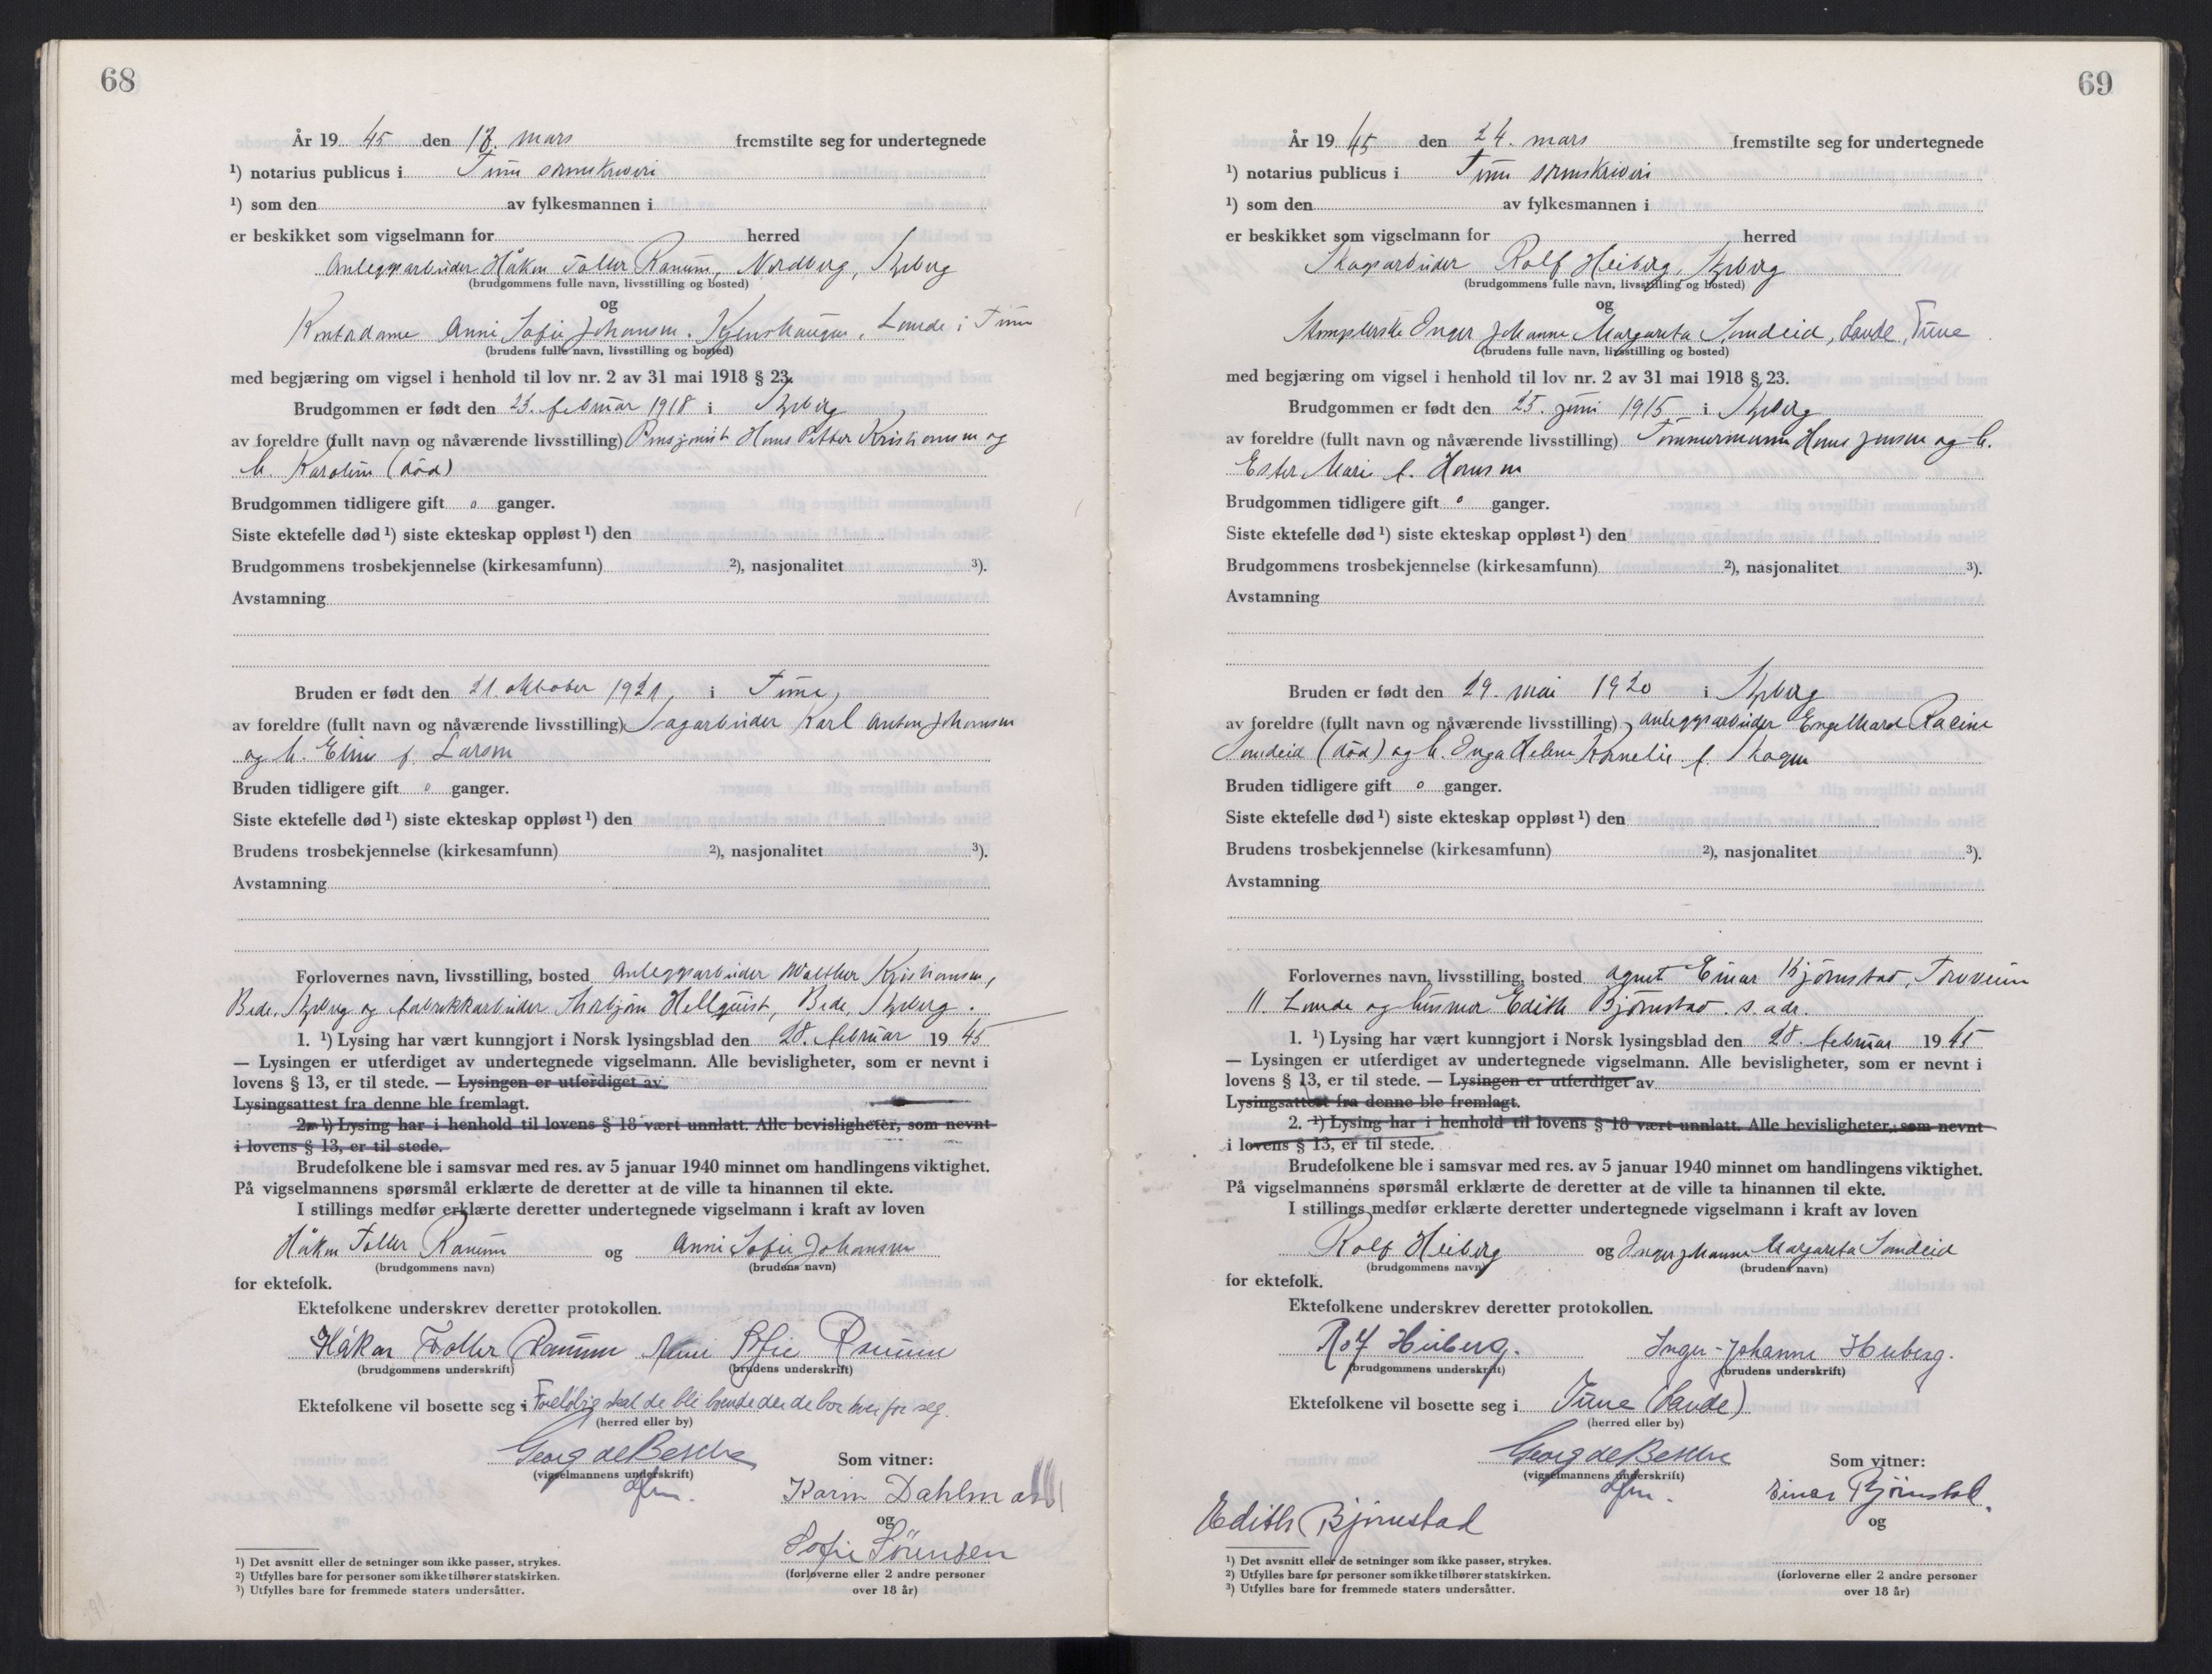 68
År 19 45 den 17. mars fremstilte seg for undertegnede
¹) notarius publicus i Tune sorenskriveri
¹) som den av fylkesmannen i
er beskikket som vigselmann for herred
Anleggsarbeider Håkon Toller Ranum, Nordberg, Skjeberg
(brudgommens fulle navn, livsstilling og bosted)
og
Kontordame Anni Sofie Johansen, Lande i Tune
(brudens fulle navn, livsstilling og bosted)
med begjæring om vigsel i henhold til lov nr. 2 av 31 mai 1918 § 23.
Brudgommen er født den 23. februar 1918 i Skjeberg
av foreldre (fullt navn og nåværende livsstilling) Pensjonist Hans Petter Kristiansen og
h. Karoline (død)
Brudgommen tidligere gift 0 ganger.
Siste ektefelle død ¹) siste ekteskap oppløst ¹) den
Brudgommens trosbekjennelse (kirkesamfunn) ²), nasjonalitet ³).
Avstamning
Bruden er født den 21. oktober 1921, i Tune,
av foreldre (fullt navn og nåværende livsstilling) Sagarbeider Karl Anton Johansen
og h. Eline f. Larsen
Bruden tidligere gift 0 ganger.
Siste ektefelle død ¹) siste ekteskap oppløst ¹) den
Brudens trosbekjennelse (kirkesamfunn) ²), nasjonalitet ³).
Avstamning
Forlovernes navn, livsstilling, bosted Anleggsarbeider Walther Kristiansen,
Bede, Skjeberg og fabrikkarbeider Thorbjørn Hellquist, Bede, Skjeberg.
1. ¹) Lysing har vært kunngjort i Norsk lysingsblad den 28. februar 19 45
— Lysingen er utferdiget av undertegnede vigselmann. Alle bevisligheter, som er nevnt i
lovens § 13, er til stede. — Lysingen er utferdiget av
Lysingsattest fra denne ble fremlagt.
2. ¹) Lysing har i henhold til lovens § 18 vært unnlatt. Alle bevisligheter, som nevnt
i lovens § 13, er til stede.
Brudefolkene ble i samsvar med res. av 5 januar 1940 minnet om handlingens viktighet.
På vigselmannens spørsmål erklærte de deretter at de ville ta hinannen til ekte.
I stillings medfør erklærte deretter undertegnede vigselmann i kraft av loven
Håkon Toller Ranum og Anni Sofie Johansen
(brudgommens navn) (brudens navn)
for ektefolk.
Ektefolkene underskrev deretter protokollen.
Håkon Toller Ranum Anni Sofie Ranum
(brudgommens underskrift) (brudens underskrift)
Ektefolkene vil bosette seg i Foreløbig skal de bli boende der de bor hver for seg.
(herred eller by)
Georg de Besche
(vigselmannens underskrift)
Som vitner:
Karin Dahlman
og
Sofie Sørensen
(forloverne eller 2 andre personer
over 18 år)
¹) Det avsnitt eller de setninger som ikke passer, strykes.
²) Utfylles bare for personer som ikke tilhører statskirken.
³) Utfylles bare for fremmede staters undersåtter.
69
År 19 45 den 24. mars fremstilte seg for undertegnede
¹) notarius publicus i Tune sorenskriveri
¹) som den av fylkesmannen i
er beskikket som vigselmann for herred
Skogsarbeider Rolf Heiberg, Skjeberg
(brudgommens fulle navn, livsstilling og bosted)
og
Inger Johanne Margareta Sandeid, Lande, Tune
(brudens fulle navn, livsstilling og bosted)
med begjæring om vigsel i henhold til lov nr. 2 av 31 mai 1918 § 23.
Brudgommen er født den 25. juni 1915 i Skjeberg
av foreldre (fullt navn og nåværende livsstilling) Tømmermann Hans Jensen og h.
Ester Marie f. Hansen
Brudgommen tidligere gift 0 ganger.
Siste ektefelle død ¹) siste ekteskap oppløst ¹) den
Brudgommens trosbekjennelse (kirkesamfunn) ²), nasjonalitet ³).
Avstamning
Bruden er født den 29. mai 1920 i Skjeberg
av foreldre (fullt navn og nåværende livsstilling) Anleggsarbeider Engelhard Racine
Sandeid (død) og h. Inga Helene Kornelie f. Skogen
Bruden tidligere gift 0 ganger.
Siste ektefelle død ¹) siste ekteskap oppløst ¹) den
Brudens trosbekjennelse (kirkesamfunn) ²), nasjonalitet ³).
Avstamning
Forlovernes navn, livsstilling, bosted agent Einar Bjørnstad,
11. Lande og husmor Edith Bjørnstad. s. adr.
1. ¹) Lysing har vært kunngjort i Norsk lysingsblad den 28. februar 19 45
— Lysingen er utferdiget av undertegnede vigselmann. Alle bevisligheter, som er nevnt i
lovens § 13, er til stede. — Lysingen er utferdiget av
Lysingsattest fra denne ble fremlagt.
2. ¹) Lysing har i henhold til lovens § 18 vært unnlatt. Alle bevisligheter, som nevnt
i lovens § 13, er til stede.
Brudefolkene ble i samsvar med res. av 5 januar 1940 minnet om handlingens viktighet.
På vigselmannens spørsmål erklærte de deretter at de ville ta hinannen til ekte.
I stillings medfør erklærte deretter undertegnede vigselmann i kraft av loven
Rolf Heiberg og Inger Johanne Margareta Sandeid
(brudgommens navn) (brudens navn)
for ektefolk.
Ektefolkene underskrev deretter protokollen.
Rolf Heiberg. Inger-Johanne Heiberg.
(brudgommens underskrift) (brudens underskrift)
Ektefolkene vil bosette seg i Tune (Lande)
(herred eller by)
Georg de Besche
(vigselmannens underskrift)
Som vitner:
Einar Bjørnstad.
og
Edith Bjørnstad
(forloverne eller 2 andre personer
over 18 år)
¹) Det avsnitt eller de setninger som ikke passer, strykes.
²) Utfylles bare for personer som ikke tilhører statskirken.
³) Utfylles bare for fremmede staters undersåtter.